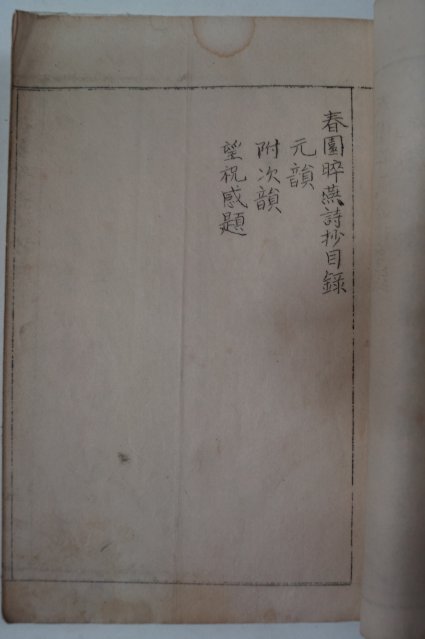 春園晬燕詩抄目錄
元韻
附次韻
望祝感題